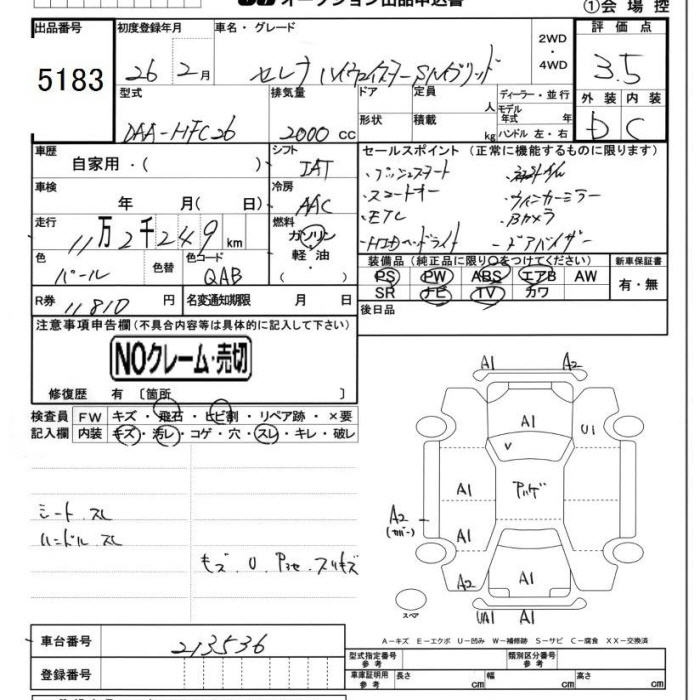 オークション出品申込書
①会場控
出品番号 初度登録年月 車名・グレード 評価点
5183 26 2月 セレナ ハイウェイスターSハイブリッド 2WD・4WD 3.5
型式 排気量 ドア 定員 人 ディーラー・並行 外装 内装
DAA-HFC26 2000cc 形状 積載 kg モデル年式 年 ハンドル 左・右 D C
車歴 自家用・( ) シフト IAT セールスポイント (正常に機能するものに限ります)
車検 年 月( 日) 冷房 AAC
・プッシュスタート
・スマートキー ・ウィンカーミラー
・ETC ・Bカメラ
・ドアバイザー
走行 11万2千249km 燃料 ガソリン・軽油・( )
色 パール 色替 色コード QAB
装備品 (純正品に限り○をつけてください) 新車保証書
PS PW ABS エアB AW 有・無
SR ナビ TV カワ
R券 11810円 名変通知期限 月 日 後日品
注意事項申告欄(不具合内容等は具体的に記入して下さい)
NOクレーム・売切
修復歴 有 〔箇所 〕
検査員 FW キズ・飛石・ヒビ割・リペア跡・×要
記入欄 内装 キズ・汚レ・コゲ・穴・スレ・キレ・破レ
シート スレ
ハンドル スレ
キズ.U.アセ.スリキズ
A1 A2
A1 U1
V
A1 アツゲ
A2
(カバー)
A1
A2 A1
スペア UA1 A1
A-キズ E-エクボ U-凹み W-補修跡 S-サビ C-腐食 XX-交換済
車台番号 213536
型式指定番号 参考 類別区分番号 参考
登録番号 車庫証明用 参考 長さ cm 幅 cm 高さ cm